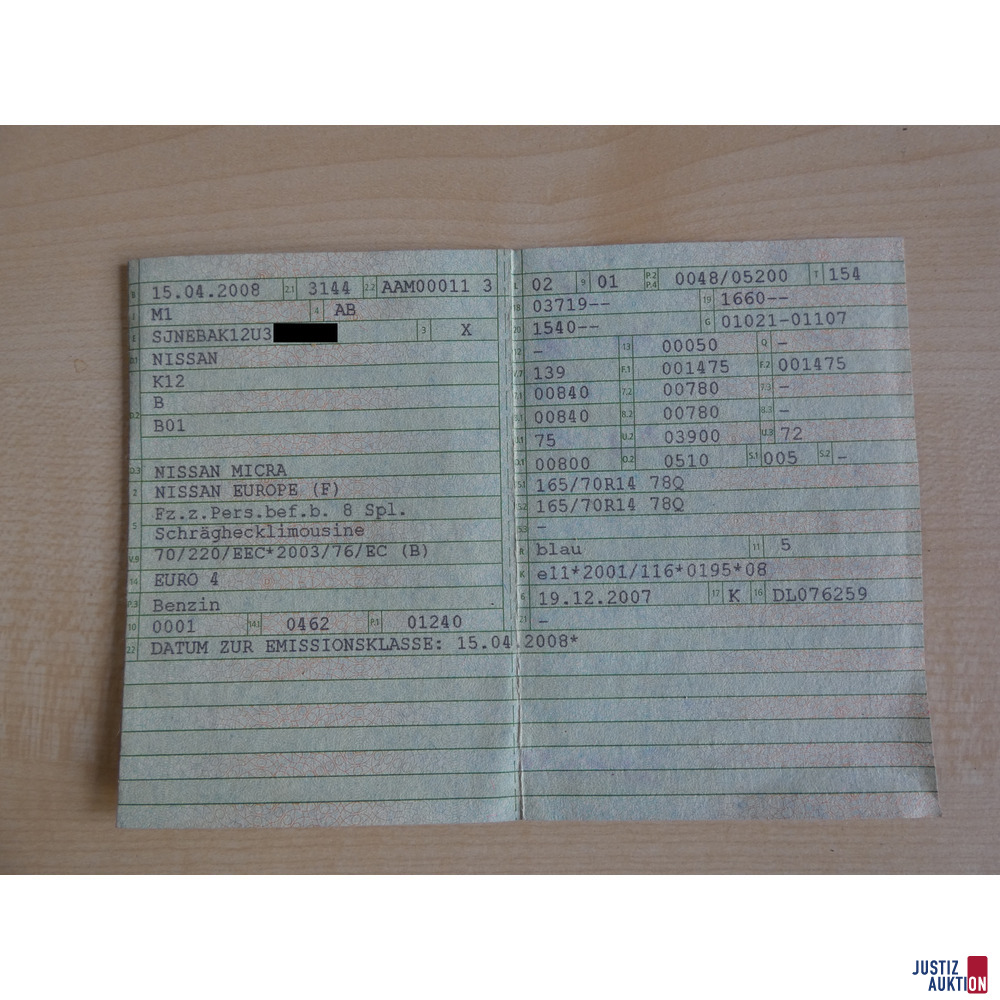 B 15.04.2008 2.1 3144 2.2 AAM00011 3
J M1 4 AB
E SJNEBAK12U3 3 X
D.1 NISSAN
K12
D.2 B
B01
D.3 NISSAN MICRA
2 NISSAN EUROPE (F)
5 Fz.z.Pers.bef.b. 8 Spl.
Schräghecklimousine
V.9 70/220/EEC*2003/76/EC (B)
14 EURO 4
P.3 Benzin
10 0001 14.1 0462 P.1 01240
22 DATUM ZUR EMISSIONSKLASSE: 15.04.2008*
L 02 9 01 P.2 P.4 0048/05200 T 154
18 03719-- 19 1660--
20 1540-- G 01021-01107
12 - 13 00050 Q -
V.7 139 F.1 001475 F.2 001475
7.1 00840 7.2 00780 7.3 -
8.1 00840 8.2 00780 8.3 -
U.1 75 U.2 03900 U.3 72
O.1 00800 O.2 0510 S.1 005 S.2 -
15.1 165/70R14 78Q
15.2 165/70R14 78Q
15.3 -
R blau 11 5
K e11*2001/116*0195*08
6 19.12.2007 17 K 16 DL076259
21 -
JUSTIZ
AUKTION